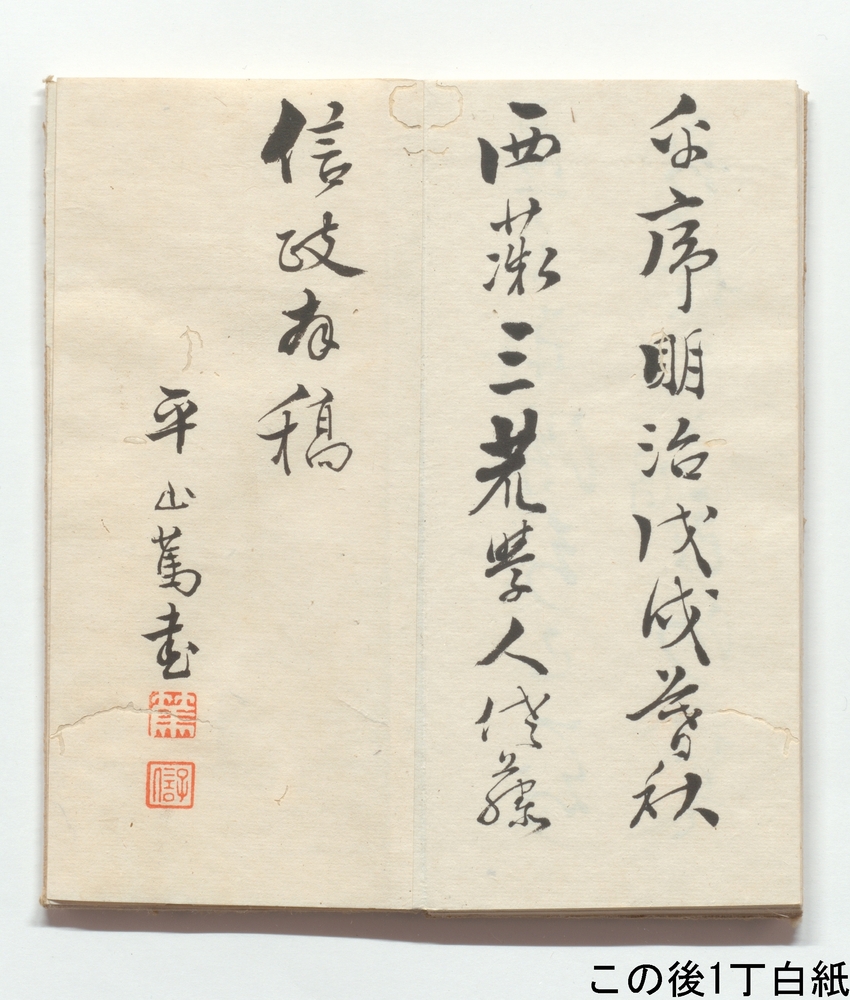 序明治戊戌暮秋
西薇三荒學人藤
信政稿
平山篤書
この後1丁白紙